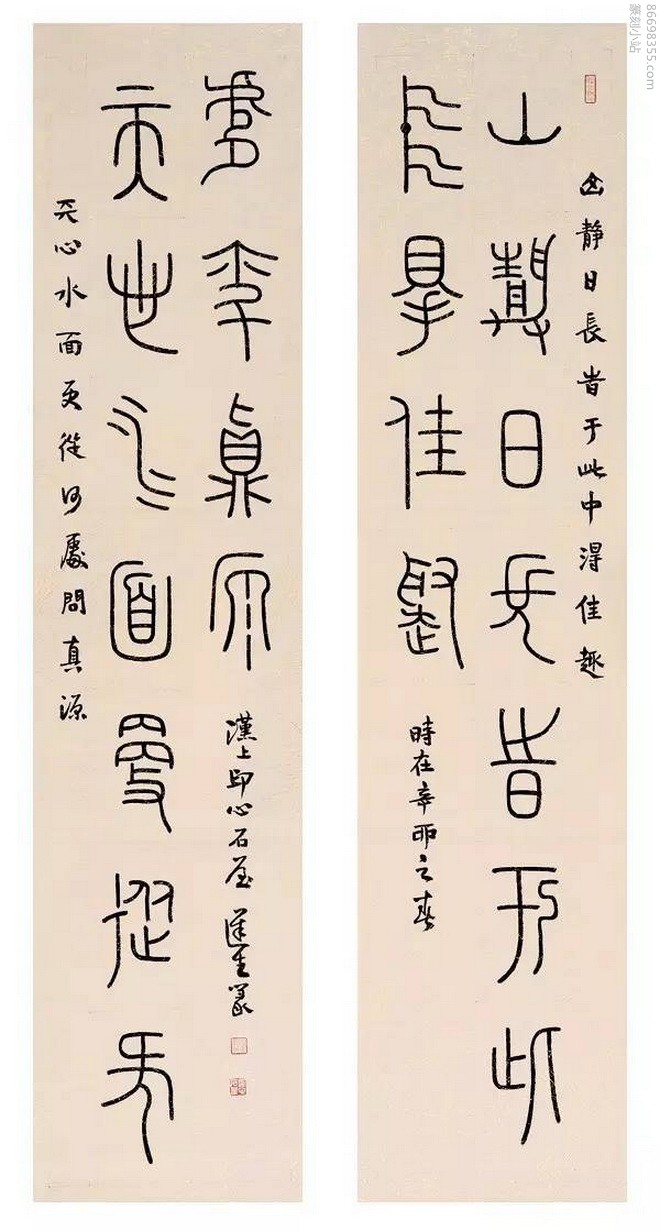 山靜日長旹于此
中得佳趣
山静日長旹于此中淂佳趣
時在辛卯之春
天心水面更從何
處問真源
天心水面更從何處問真源
漢上印心石屋 篆
篆刻小站
86698355.com